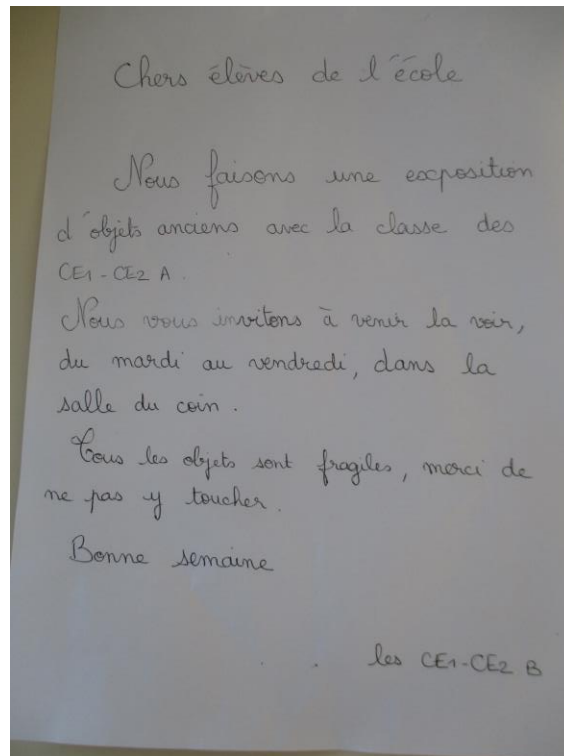 Chers élèves de l'école
Nous faisons une exposition
d'objets anciens avec la classe des
CE1-CE2 A.
Nous vous invitons à venir la voir,
du mardi au vendredi, dans la
salle du coin.
Tous les objets sont fragiles, merci de
ne pas y toucher.
Bonne semaine
les CE1-CE2 B